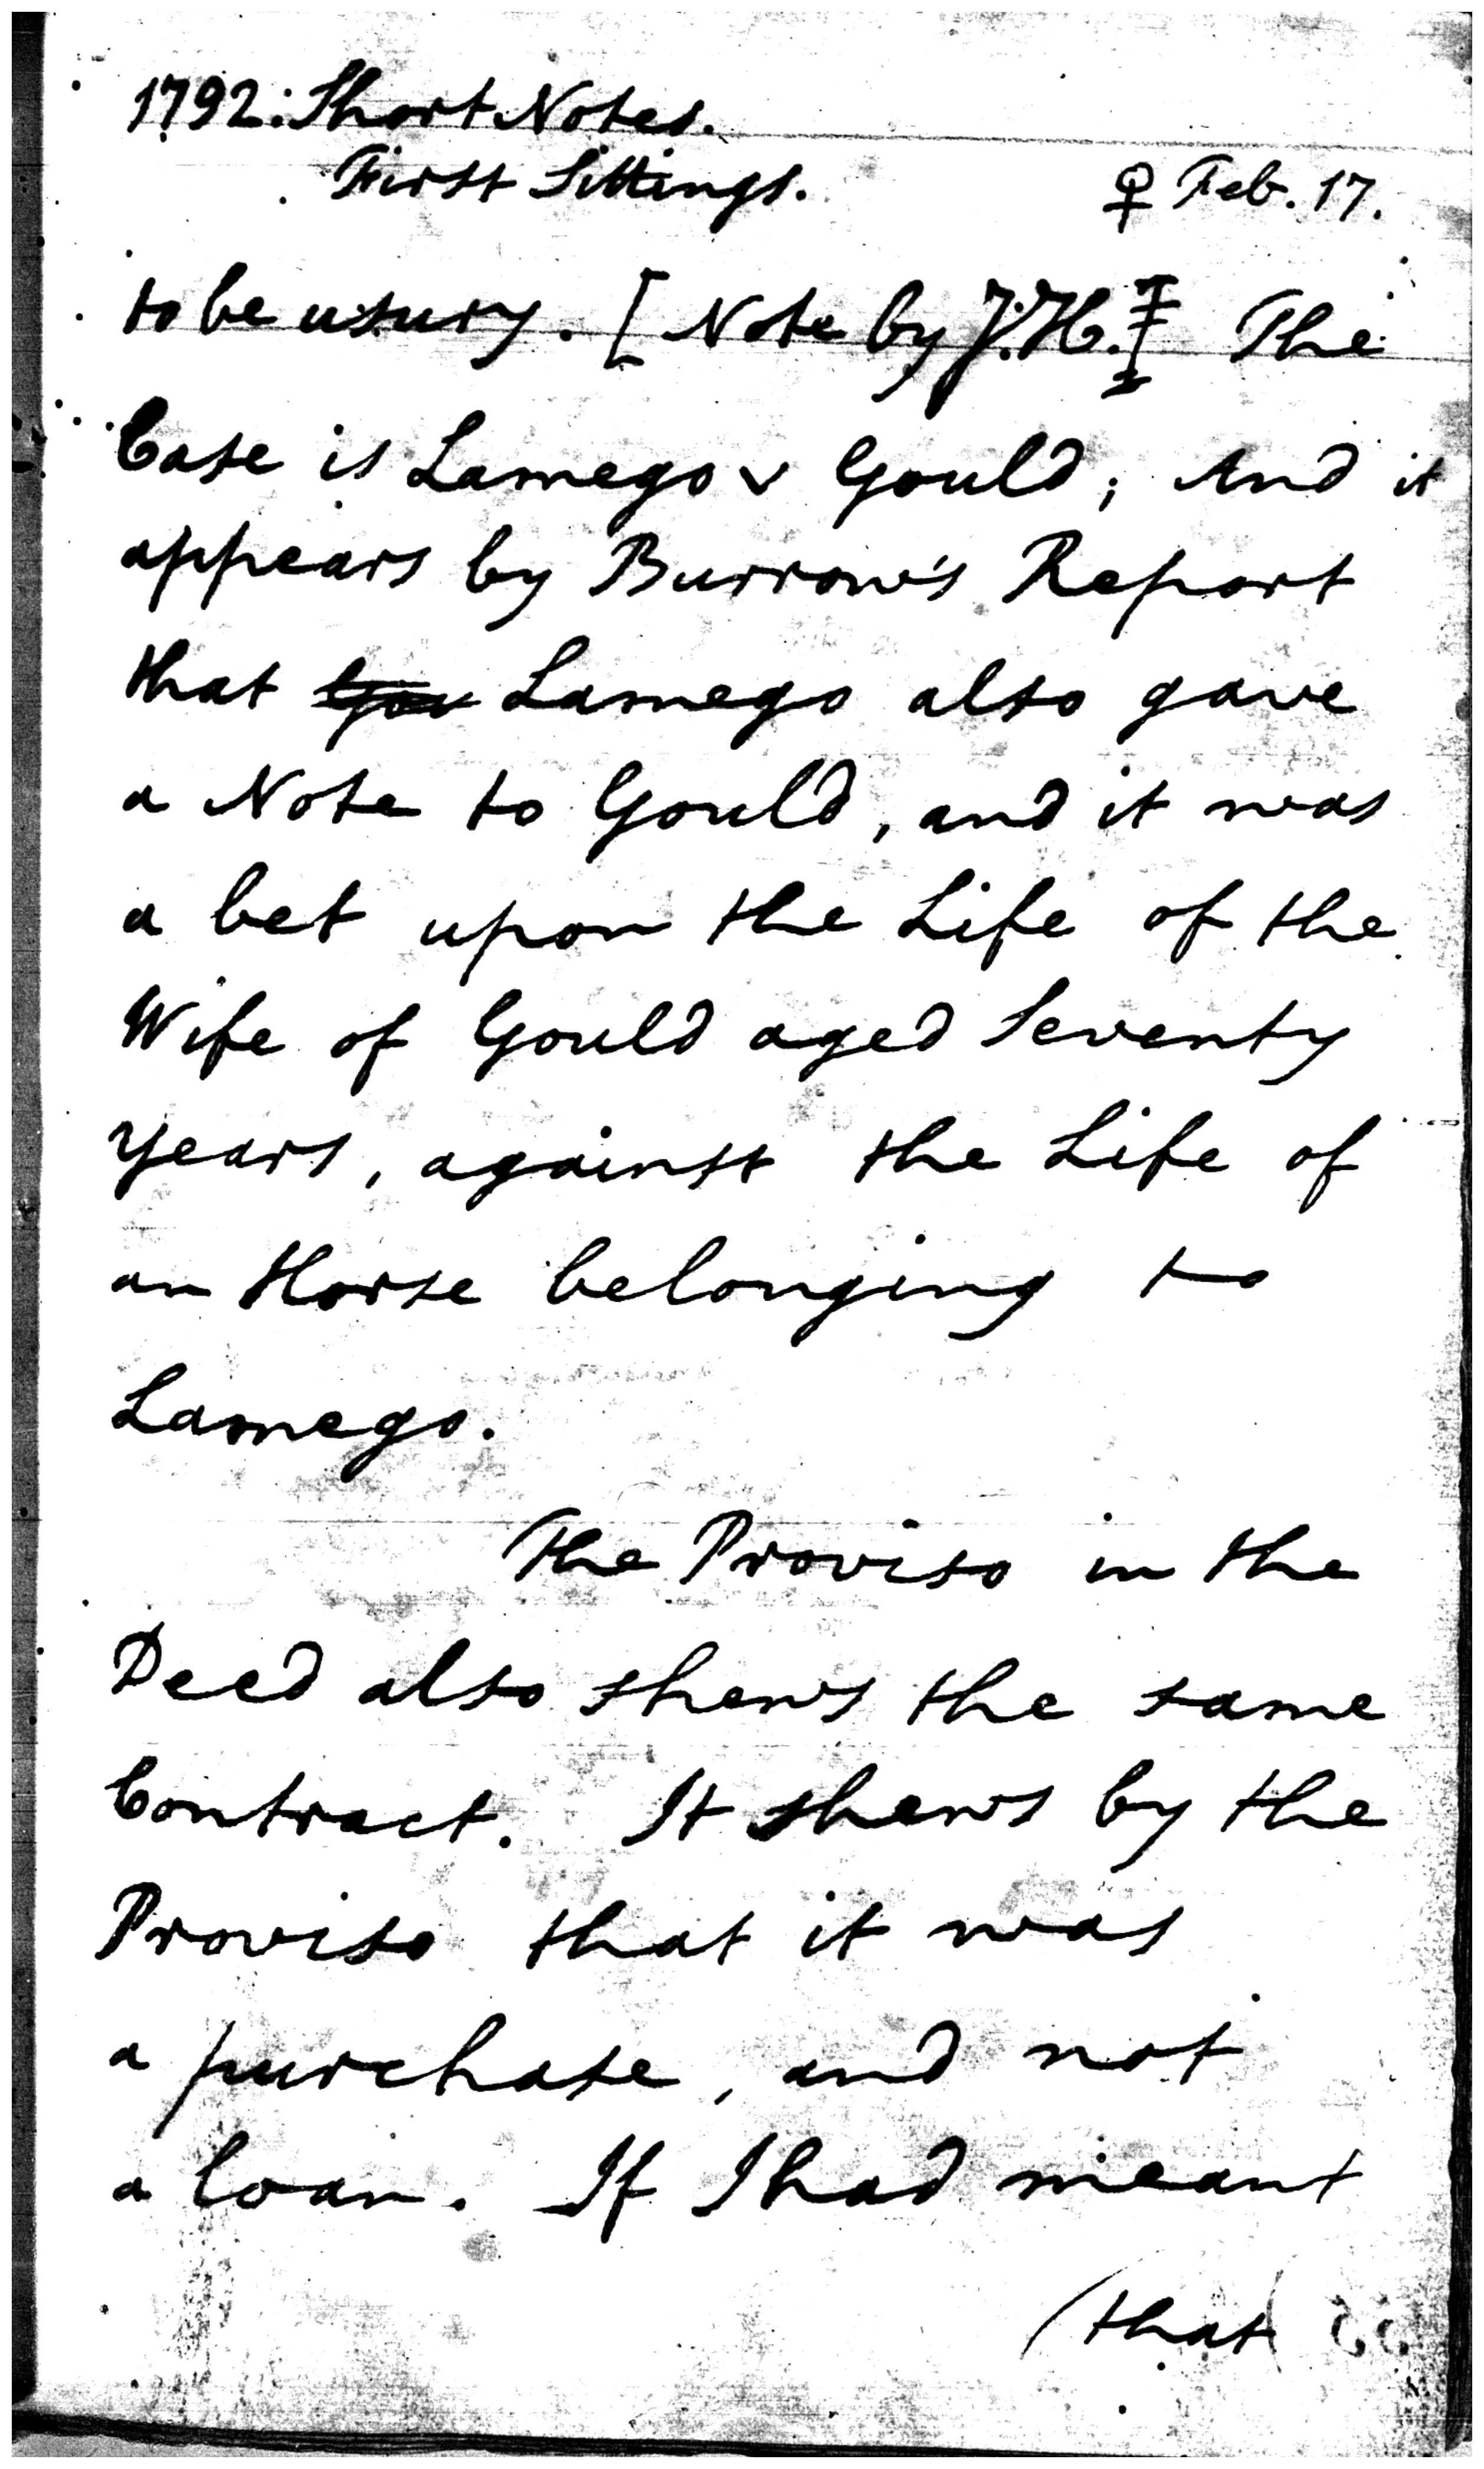 1792: Short Notes.
First Sittings. ♀ Feb. 17.
to be usury. [Note by J.H.] The
Case is Lamego v Gould; And it
appears by Burrow's Report
that Gou Lamego also gave
a Note to Gould, and it was
a bet upon the Life of the
Wife of Gould aged Seventy
Years, against the Life of
an Horse belonging to
Lamego.
The Proviso in the
Deed also shews the same
Contract. It shews by the
Proviso that it was
a purchase, and not
a loan. If I had meant
(that)